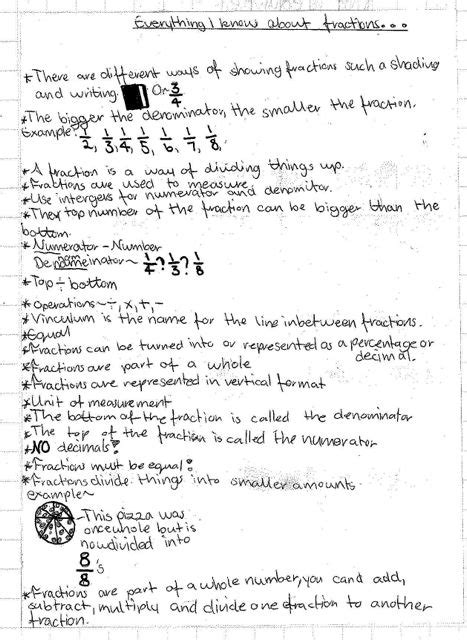 Everything I know about fractions...
* There are different ways of showing fractions such a shading
and writing. Or 3/4
* The bigger the denominator, the smaller the fraction.
Example: 1/2, 1/3, 1/4, 1/5, 1/6, 1/7, 1/8,
* A fraction is a way of dividing things up.
* Fractions are used to measure
* Use intergers for numerator and denomitor.
* They top number of the fraction can be bigger than the
bottom.
* Numerator - Number
Denameinator ~ 1/4? 1/3? 1/8
* Top ÷ bottom
* Operations ~ ÷, x, +, -
* Vinculum is the name for the line inbetween fractions.
* Equal
* Fractions can be turned into or represented as a percentage or
decimal.
* Fractions are part of a whole
* Fractions are represented in vertical format
* Unit of measurement
* The bottom of the fraction is called the denominator
* The top of the fraction is called the numerator
* NO decimals!
* Fractions must be equal!
* Fractions divide things into smaller amounts
example ~
- This pizza was
once whole but is
now divided into
8/8's
* Fractions are part of a whole number, you cand add,
subtract, multiply and divide one fraction to another
fraction.